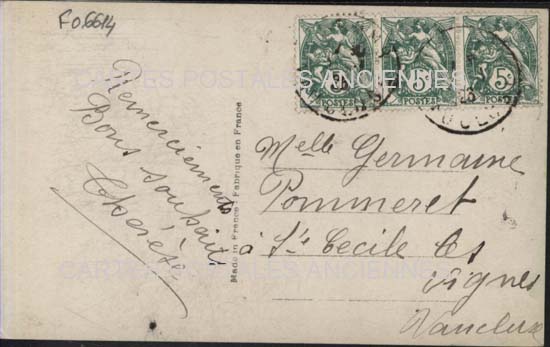 FO.6614
CARTES POSTALES ANCIENNES
Remerciements
Bons souhaits
Made in France - Fabriqué en France
Melle Germaine
Pommeret
à Ste Cecile les
vignes
Vaucluse
CARTES POSTALES ANCIENNES
5
POSTES
5
POSTES
5
POSTES